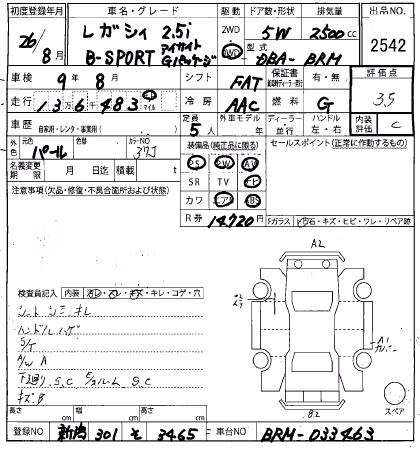 初度登録年月 車名・グレード 駆動 ドア数・形状 排気量 出品NO.
26/8月 レガシィ 2.5i 2WD 4WD 5W 2500cc 2542
B-SPORT アイサイト Gパッケージ 型式 DBA-BRM
車検 9年8月 シフト FAT 保証書 有・無 評価点 3.5
走行 13万6千483 km マイル 冷房 AAC 燃料 G
車歴 自家用・レンタ・事業用( ) 定員 5人 外車モデル 年 ディーラー・並行 ハンドル 左・右 内装評価 C
外色 元色 パール 色替 カラーNO 37J 装備品(純正品に限る) セールスポイント(正常に作動するもの)
名義変更期限 月 日迄 積載 t
PS PW AW
SR TV ナビ
カワ エアB ABS
R券 14720円
注意事項(欠品・修復・不具合箇所および状態)
Fガラス 飛石・キズ・ヒビ・ワレ・リペア跡
A2
検査員記入 内装 汚レ・スレ・キズ・キレ・コゲ・穴
シートシミ キレ
ハンドルハゲ
S/T
A/W A
下廻り S.C E/ルーム S.C
キズ・B
B2
スペア
高さ cm 幅 cm 長さ cm
登録NO 新潟 301 そ 3465 車台NO BRM-033463